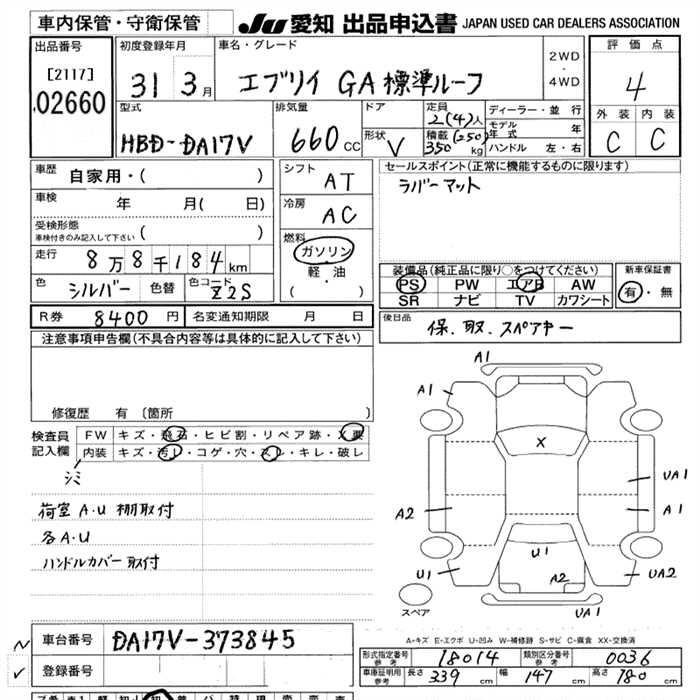 車内保管・守衛保管
JU 愛知 出品申込書 JAPAN USED CAR DEALERS ASSOCIATION
出品番号
[2117]
02660
初度登録年月
31 3月
車名・グレード
エブリイ GA 標準ルーフ
2WD
・
4WD
評価点
4
外装 内装
C C
型式
HBD-DA17V
排気量
660 CC
ドア
形状 V
定員
2(4)人
積載 (250)
350 kg
ディーラー・並 行
モデル年式 年
ハンドル 左・右
車歴 自家用・( )
車検 年 月( 日)
受検形態
車検付きのみ記入して下さい ( )
走行 8万8千184km
色 シルバー 色替 色コード Z2S
シフト
AT
冷房
AC
燃料
ガソリン
・
軽・油
( )
セールスポイント(正常に機能するものに限ります)
ラバーマット
装備品(純正品に限り○をつけてください)
PS PW エアB AW
SR ナビ TV カワシート
新車保証書
有・無
R券 8400円 名変通知期限 月 日
後日品 保、取、スペアキー
注意事項申告欄(不具合内容等は具体的に記入して下さい)
修復歴 有 〔箇所 〕
検査員
記入欄
FW キズ・飛石・ヒビ割・リペア跡・X要
内装 キズ・汚レ・コゲ・穴・スレ・キレ・破レ
シミ
荷室 A・U 棚取付
各A・U
ハンドルカバー取付
A1
A1
X
UA1
A2
A1
U1
U1
A2
UA2
UA1
スペア
A-キズ E-エクボ U-凹み W-補修跡 S-サビ C-腐食 XX-交換済
車台番号 DA17V-373845
登録番号
型式指定番号
参考 18014
類別区分番号
参考 0036
車庫証明用
参考 長さ 339 cm 幅 147 cm 高さ 180 cm